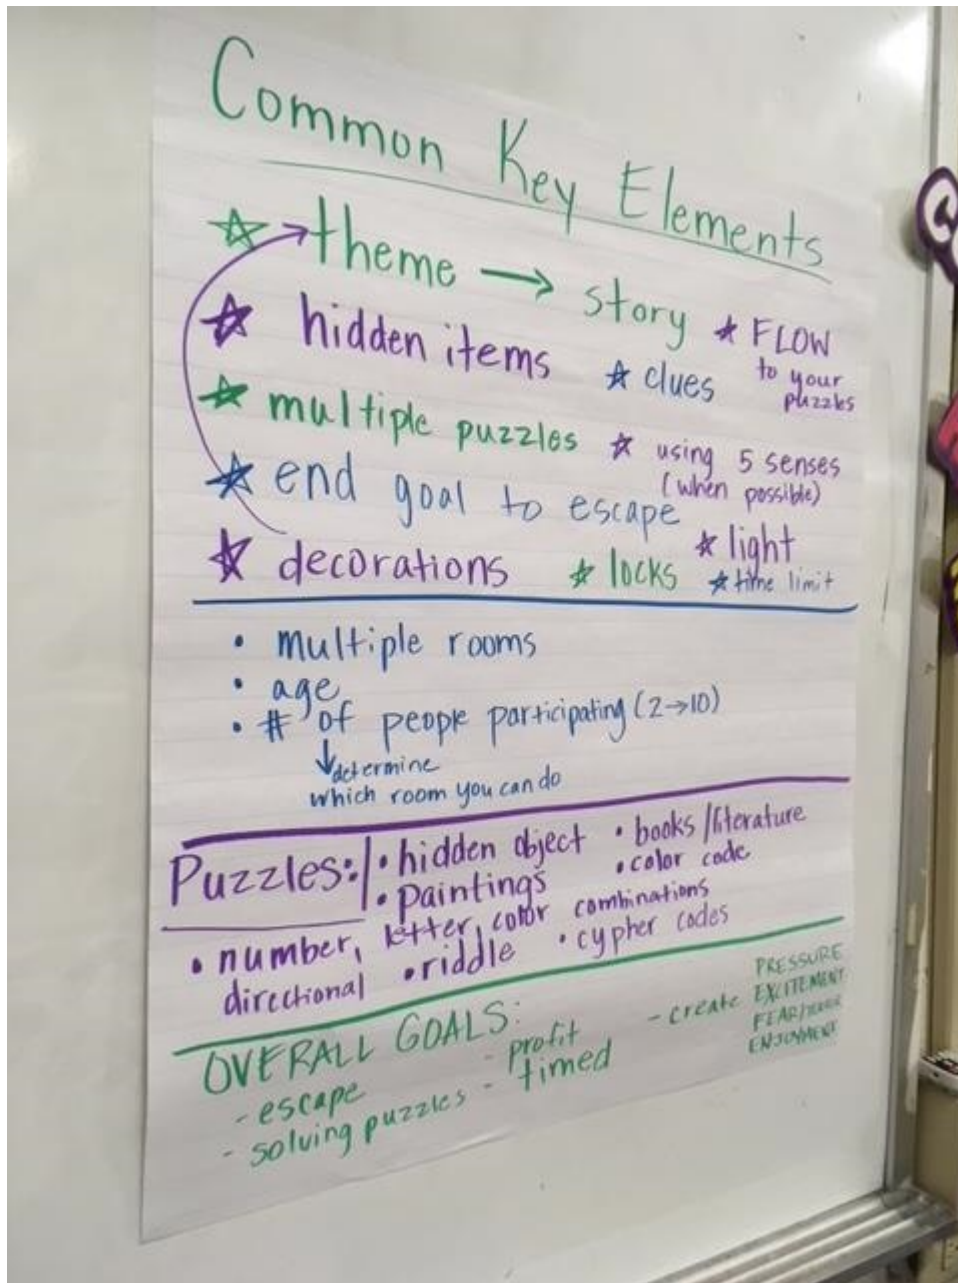 Common Key Elements
☆ theme → story
☆ hidden items
☆ clues
☆ FLOW
to your
puzzles
☆ multiple puzzles
☆ using 5 senses
(when possible)
☆ end goal to escape
☆ decorations
☆ locks
☆ light
☆ time limit
• multiple rooms
• age
• # of people participating (2→10)
↓ determine
which room you can do
Puzzles:
• hidden object
• books/literature
• paintings
• color code
• number, letter, color combinations
directional
• riddle
• cypher codes
OVERALL GOALS:
- escape
- solving puzzles
- profit
- timed
- create
PRESSURE
EXCITEMENT
FEAR/
ENJOYMENT